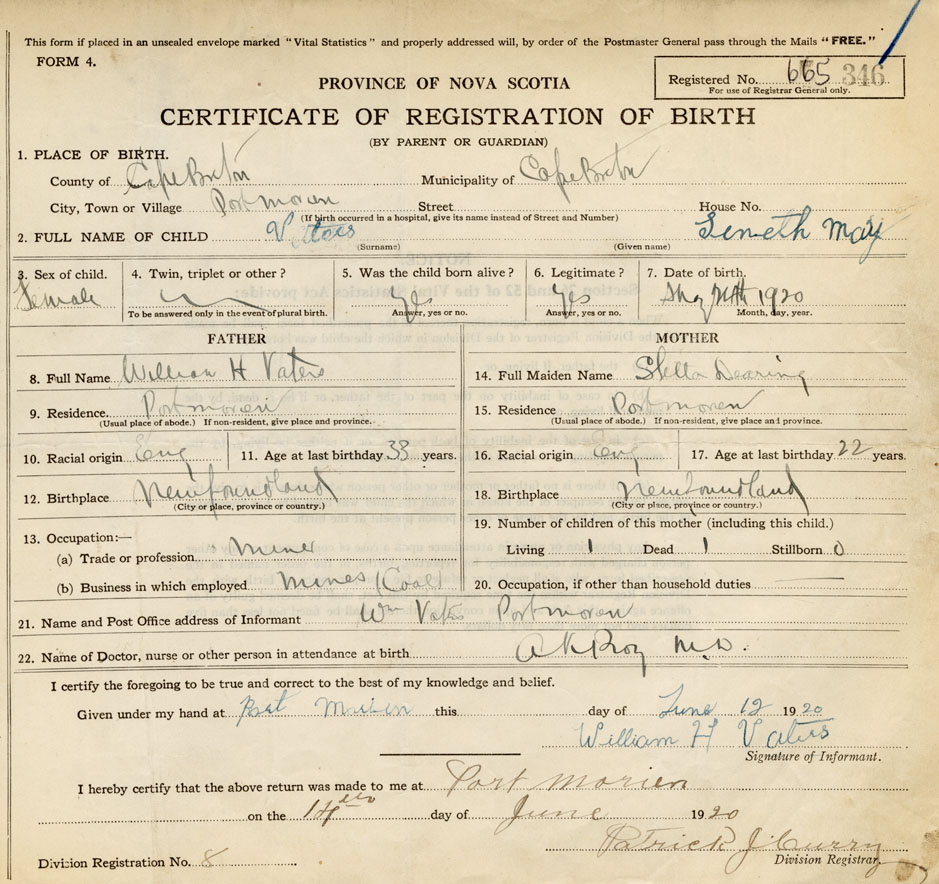 This form if placed in an unsealed envelope marked "Vital Statistics" and properly addressed will, by order of the Postmaster General pass through the Mails "FREE."
FORM 4.
PROVINCE OF NOVA SCOTIA
Registered No. 665 346
For use of Registrar General only.
CERTIFICATE OF REGISTRATION OF BIRTH
(BY PARENT OR GUARDIAN)
1. PLACE OF BIRTH.
County of Cape Breton Municipality of Cape Breton
City, Town or Village Port morien Street House No.
(If birth occurred in a hospital, give its name instead of Street and Number)
2. FULL NAME OF CHILD Vaters Seneth May
(Surname) (Given name)
3. Sex of child. 4. Twin, triplet or other? 5. Was the child born alive? 6. Legitimate? 7. Date of birth.
Female Yes Yes 1920
To be answered only in the event of plural birth. Answer, yes or no. Answer, yes or no. Month, day, year.
FATHER MOTHER
8. Full Name William H Vaters 14. Full Maiden Name Stella Dearing
9. Residence. Port morien 15. Residence Port morien
(Usual place of abode.) If non-resident, give place and province. (Usual place of abode.) If non-resident, give place and province.
10. Racial origin Eng 11. Age at last birthday 33 years. 16. Racial origin Eng 17. Age at last birthday 22 years.
12. Birthplace Newfoundland 18. Birthplace Newfoundland
(City or place, province or country.) (City or place, province or country.)
13. Occupation:— 19. Number of children of this mother (including this child.)
(a) Trade or profession Miner Living 1 Dead 1 Stillborn 0
(b) Business in which employed Mines (Coal) 20. Occupation, if other than household duties
21. Name and Post Office address of Informant Wm Vaters Port morien
22. Name of Doctor, nurse or other person in attendance at birth A K Roy M.D.
I certify the foregoing to be true and correct to the best of my knowledge and belief.
Given under my hand at Port Morien this day of June 12 1920
William H Vaters
Signature of Informant.
I hereby certify that the above return was made to me at Port Morien
on the 14 day of June 1920
Patrick J Curry
Division Registrar.
Division Registration No. 8